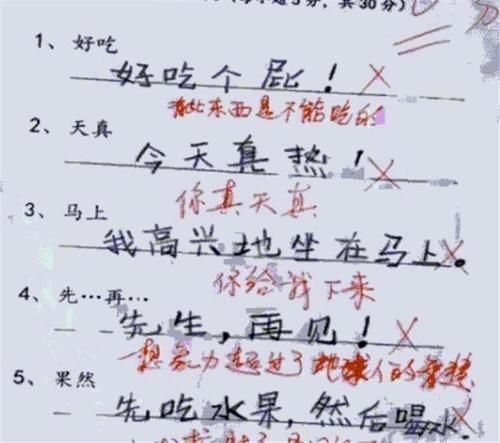 5分，共30分）
1、好吃
好吃个屁！
有些东西是不能吃的
2、天真
今天真热！
你真天真
3、马上
我高兴地坐在马上。
你给我下来
4、先…再…
先生，再见！
想象力超过了地球人的
5、果然
先吃水果，然后喝水